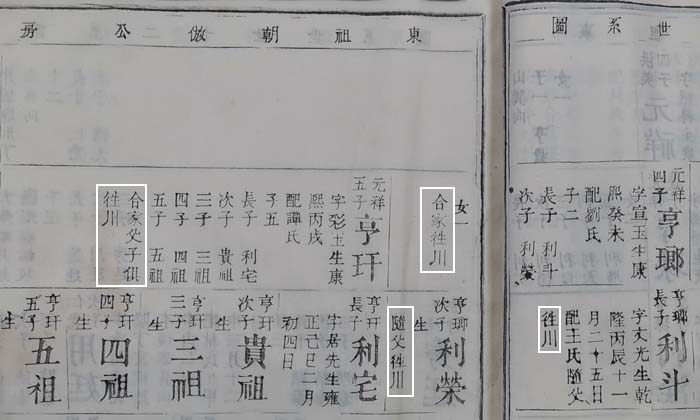 世系圖
元祥四子亨瑯
字宣玉生康
熙癸未
配劉氏
子二
長子 利斗
次子 利榮
亨瑯長子利斗
字文光生乾
隆丙辰十一
月二十五日
配王氏隨父
往川
東祖朝倣公房
女一
合家往川
元祥五子亨玕
字彩玉生康
熙丙戌
配譚氏
子五
長子 利宅
次子 貴祖
三子 三祖
四子 四祖
五子 五祖
合家父子俱
往川
亨瑯次子利榮
生
隨父往川
亨玕長子利宅
字居先生雍
正己巳二月
初四日
亨玕次子貴祖
生
亨玕三子三祖
生
亨玕四子四祖
生
亨玕五子五祖
生